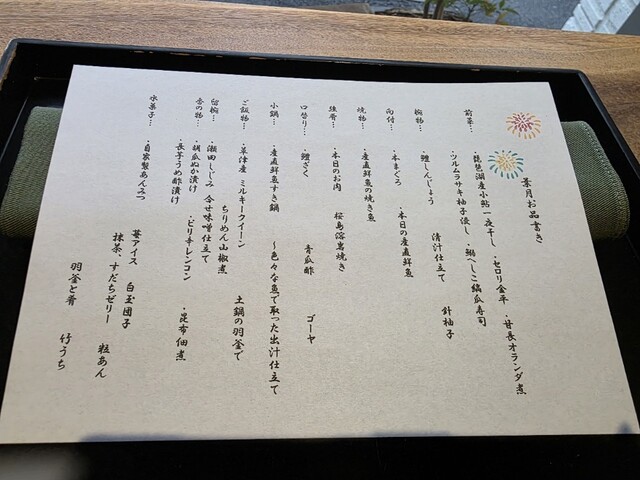 葉月お品書き
前菜…・琵琶湖産小鮎一夜干し ・セロリ金平 ・甘長オランダ煮
・ツルムラサキ柚子浸し ・鯖へしこ縞瓜寿司
椀物…・鱧しんじょう 清汁仕立て 針柚子
向付…・本まぐろ ・本日の産直鮮魚
焼物…・産直鮮魚の焼き魚
強肴…・本日のお肉 桜島溶岩焼き
口替り…・鰻ざく 青瓜酢 ゴーヤ
小鍋…・産直鮮魚すき鍋 ～色々な魚で取った出汁仕立て
ご飯物…・草津産 ミルキークイーン 土鍋の羽釜で
ちりめん山椒煮
留椀…・瀬田しじみ 合せ味噌仕立て
香の物…・胡瓜ぬか漬け ・ピリ辛レンコン ・昆布佃煮
・長芋うめ酢漬け
水菓子…・自家製あんみつ
苺アイス 白玉団子
抹茶、すだちゼリー 粒あん
羽釜と肴 竹うち